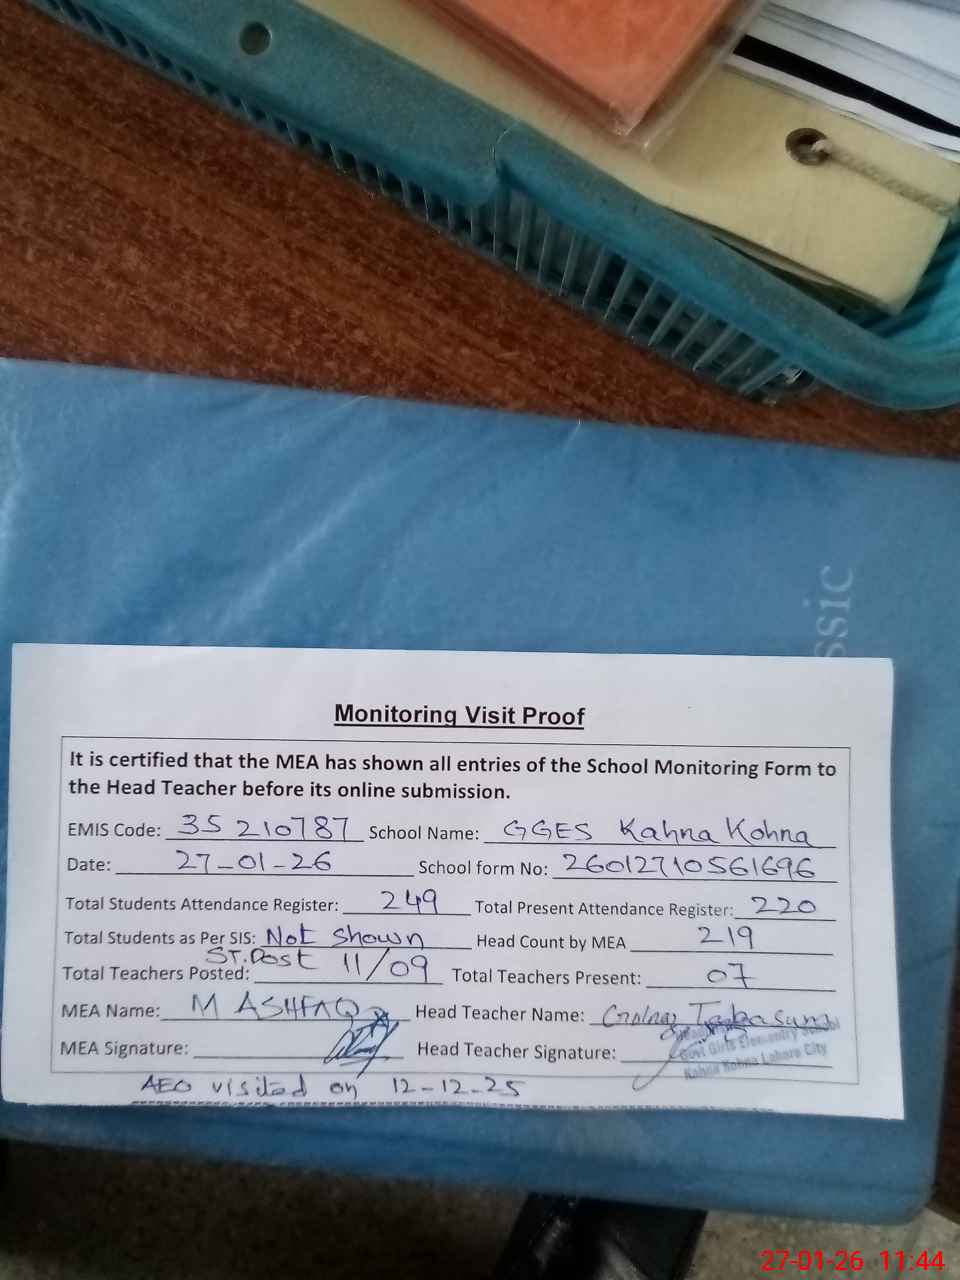 ssic
Monitoring Visit Proof
It is certified that the MEA has shown all entries of the School Monitoring Form to
the Head Teacher before its online submission.
EMIS Code: 35210787 School Name: GGES Kahna Kohna
Date: 27-01-26 School form No: 26012710561696
Total Students Attendance Register: 249 Total Present Attendance Register: 220
Total Students as Per SIS: Not shown Head Count by MEA 219
Total Teachers Posted: ST.Post 11/09 Total Teachers Present: 07
MEA Name: M ASHFAQ Head Teacher Name: Tabasum
MEA Signature: Head Teacher Signature:
Govt Girls Elementry School
Kahna Kohna Lahore City
AEO visited on 12-12-25
27-01-26 11:44